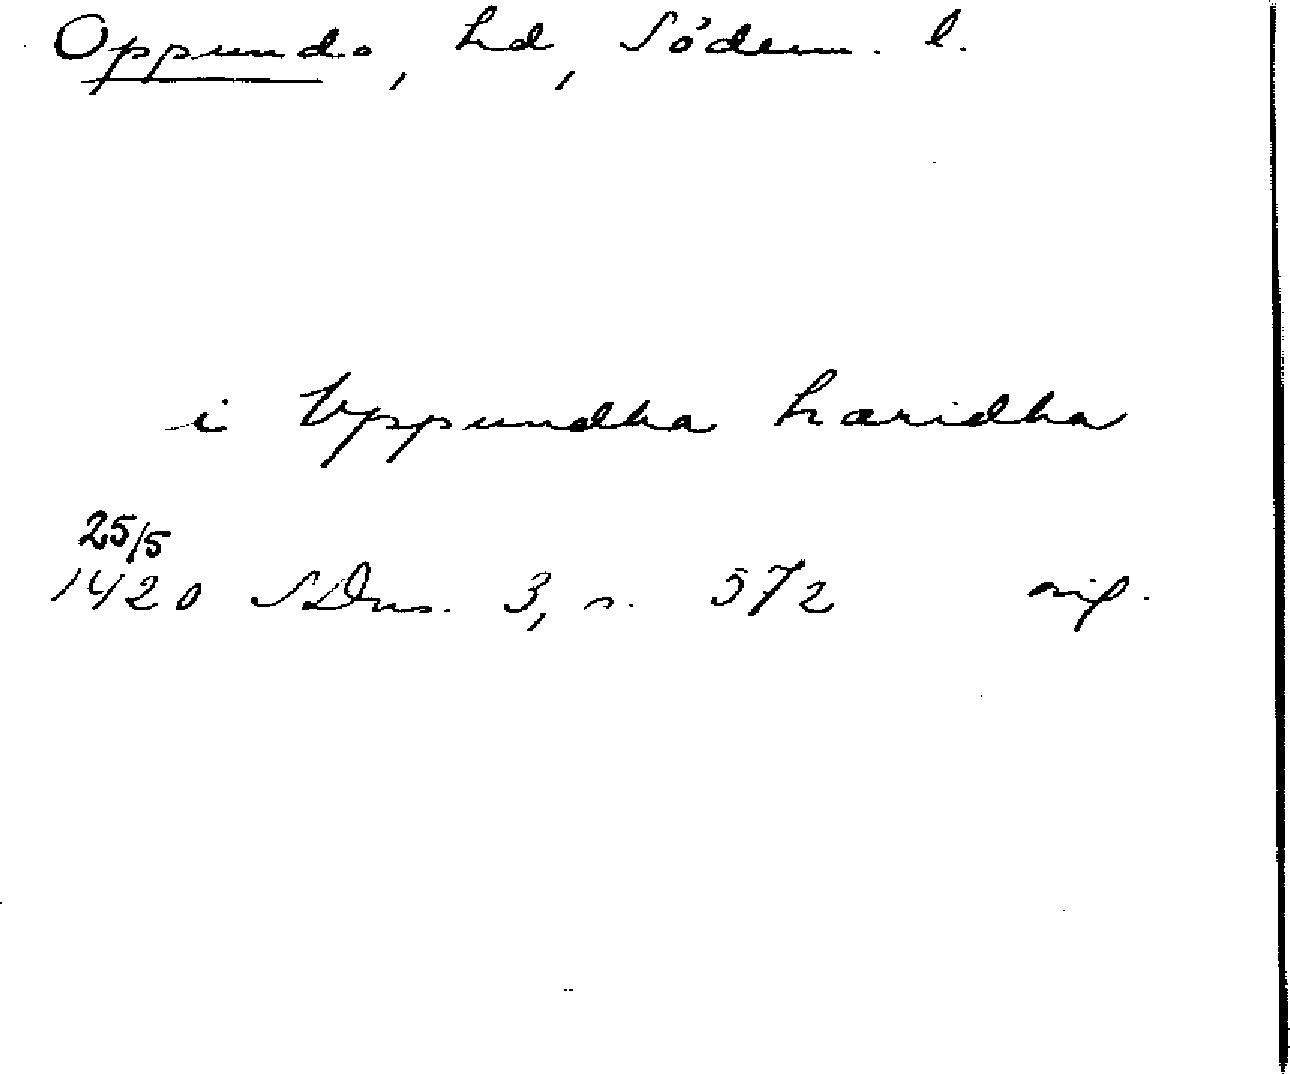 Oppunda, hd, Södem. l.
i Vppundha hæridha
25/5
1420 SDns. 3, s. 572 orig.